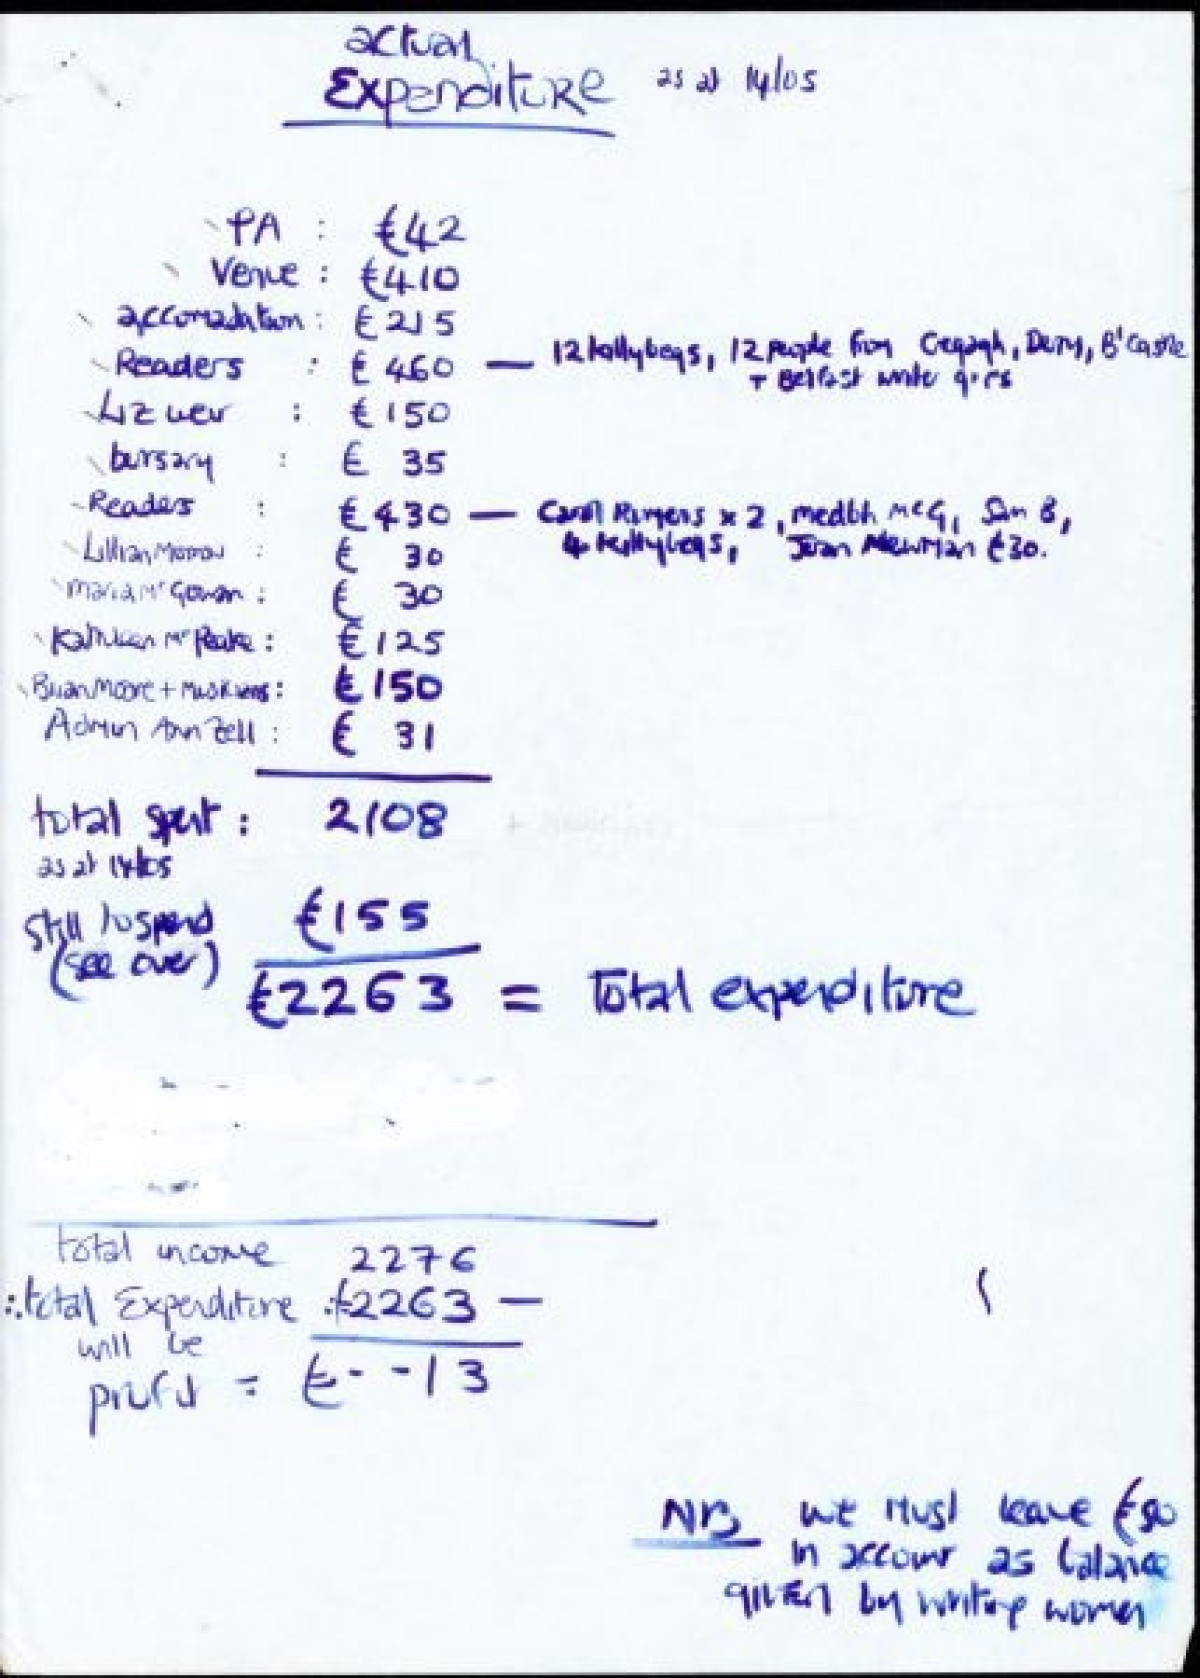 actual
Expenditure as at 14/05
PA : £42
Venue : £410
accomadation : £215
Readers : £460 — 12 killybegs, 12 people from Cregagh, Derry, B'Castle
+ Belfast write
Liz weir : £150
bursary : £ 35
Readers : £430 — Caroll Rumens x 2, medbh McG, Sam B,
4 killybegs, Joan Newman £30.
Lillian Morrow : £ 30
Maria Mc Gowan : £ 30
Kathleen Mc Peake : £125
Brian Moore + Musicians : £150
Admin Ann Zell : £ 31
total spent : 2108
as at 14/05
Still to spend £155
(see over)
£2263 = Total expenditure
total income 2276
∴ total Expenditure £2263 —
will be
profit = £--13
NB we must leave £50
in account as balance
given by writing women